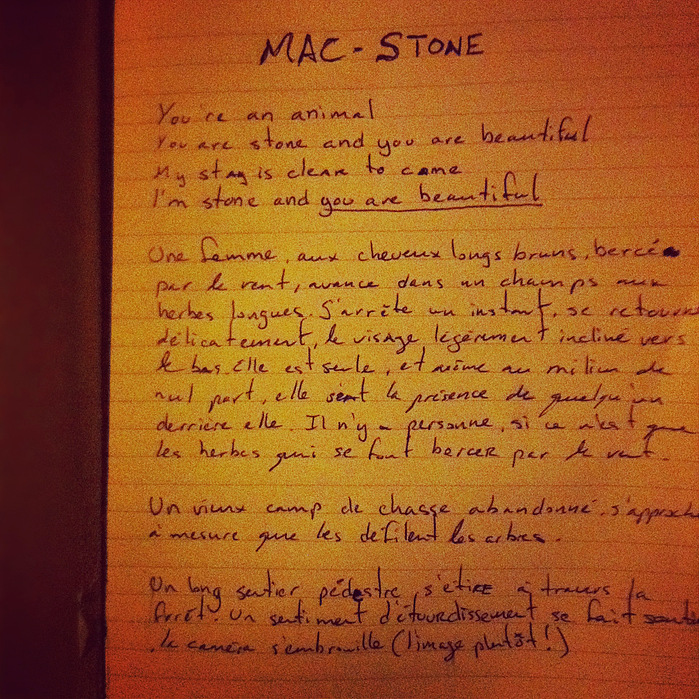 MAC-STONE
You're an animal
You are stone and you are beautiful
My stag is clear to came
I'm stone and you are beautiful
Une femme, aux cheveux longs bruns, bercée
par le vent, avance dans un champs aux
herbes longues. S'arrête un instant, se retourn
délicatement, le visage légèrement incliné vers
le bas. Elle est seule, et même au milieu de
nul part, elle sent la présence de quelqu'un
derrière elle. Il n'y a personne, si ce n'est que
les herbes qui se font bercer par le vent.
Un vieux camp de chasse abandonné, s'approch
à mesure que les défilent les arbres.
Un long sentier pédestre, s'étire à travers la
forêt. Un sentiment d'étourdissement se fait senti
la caméra s'embrouille (l'image plutôt!)